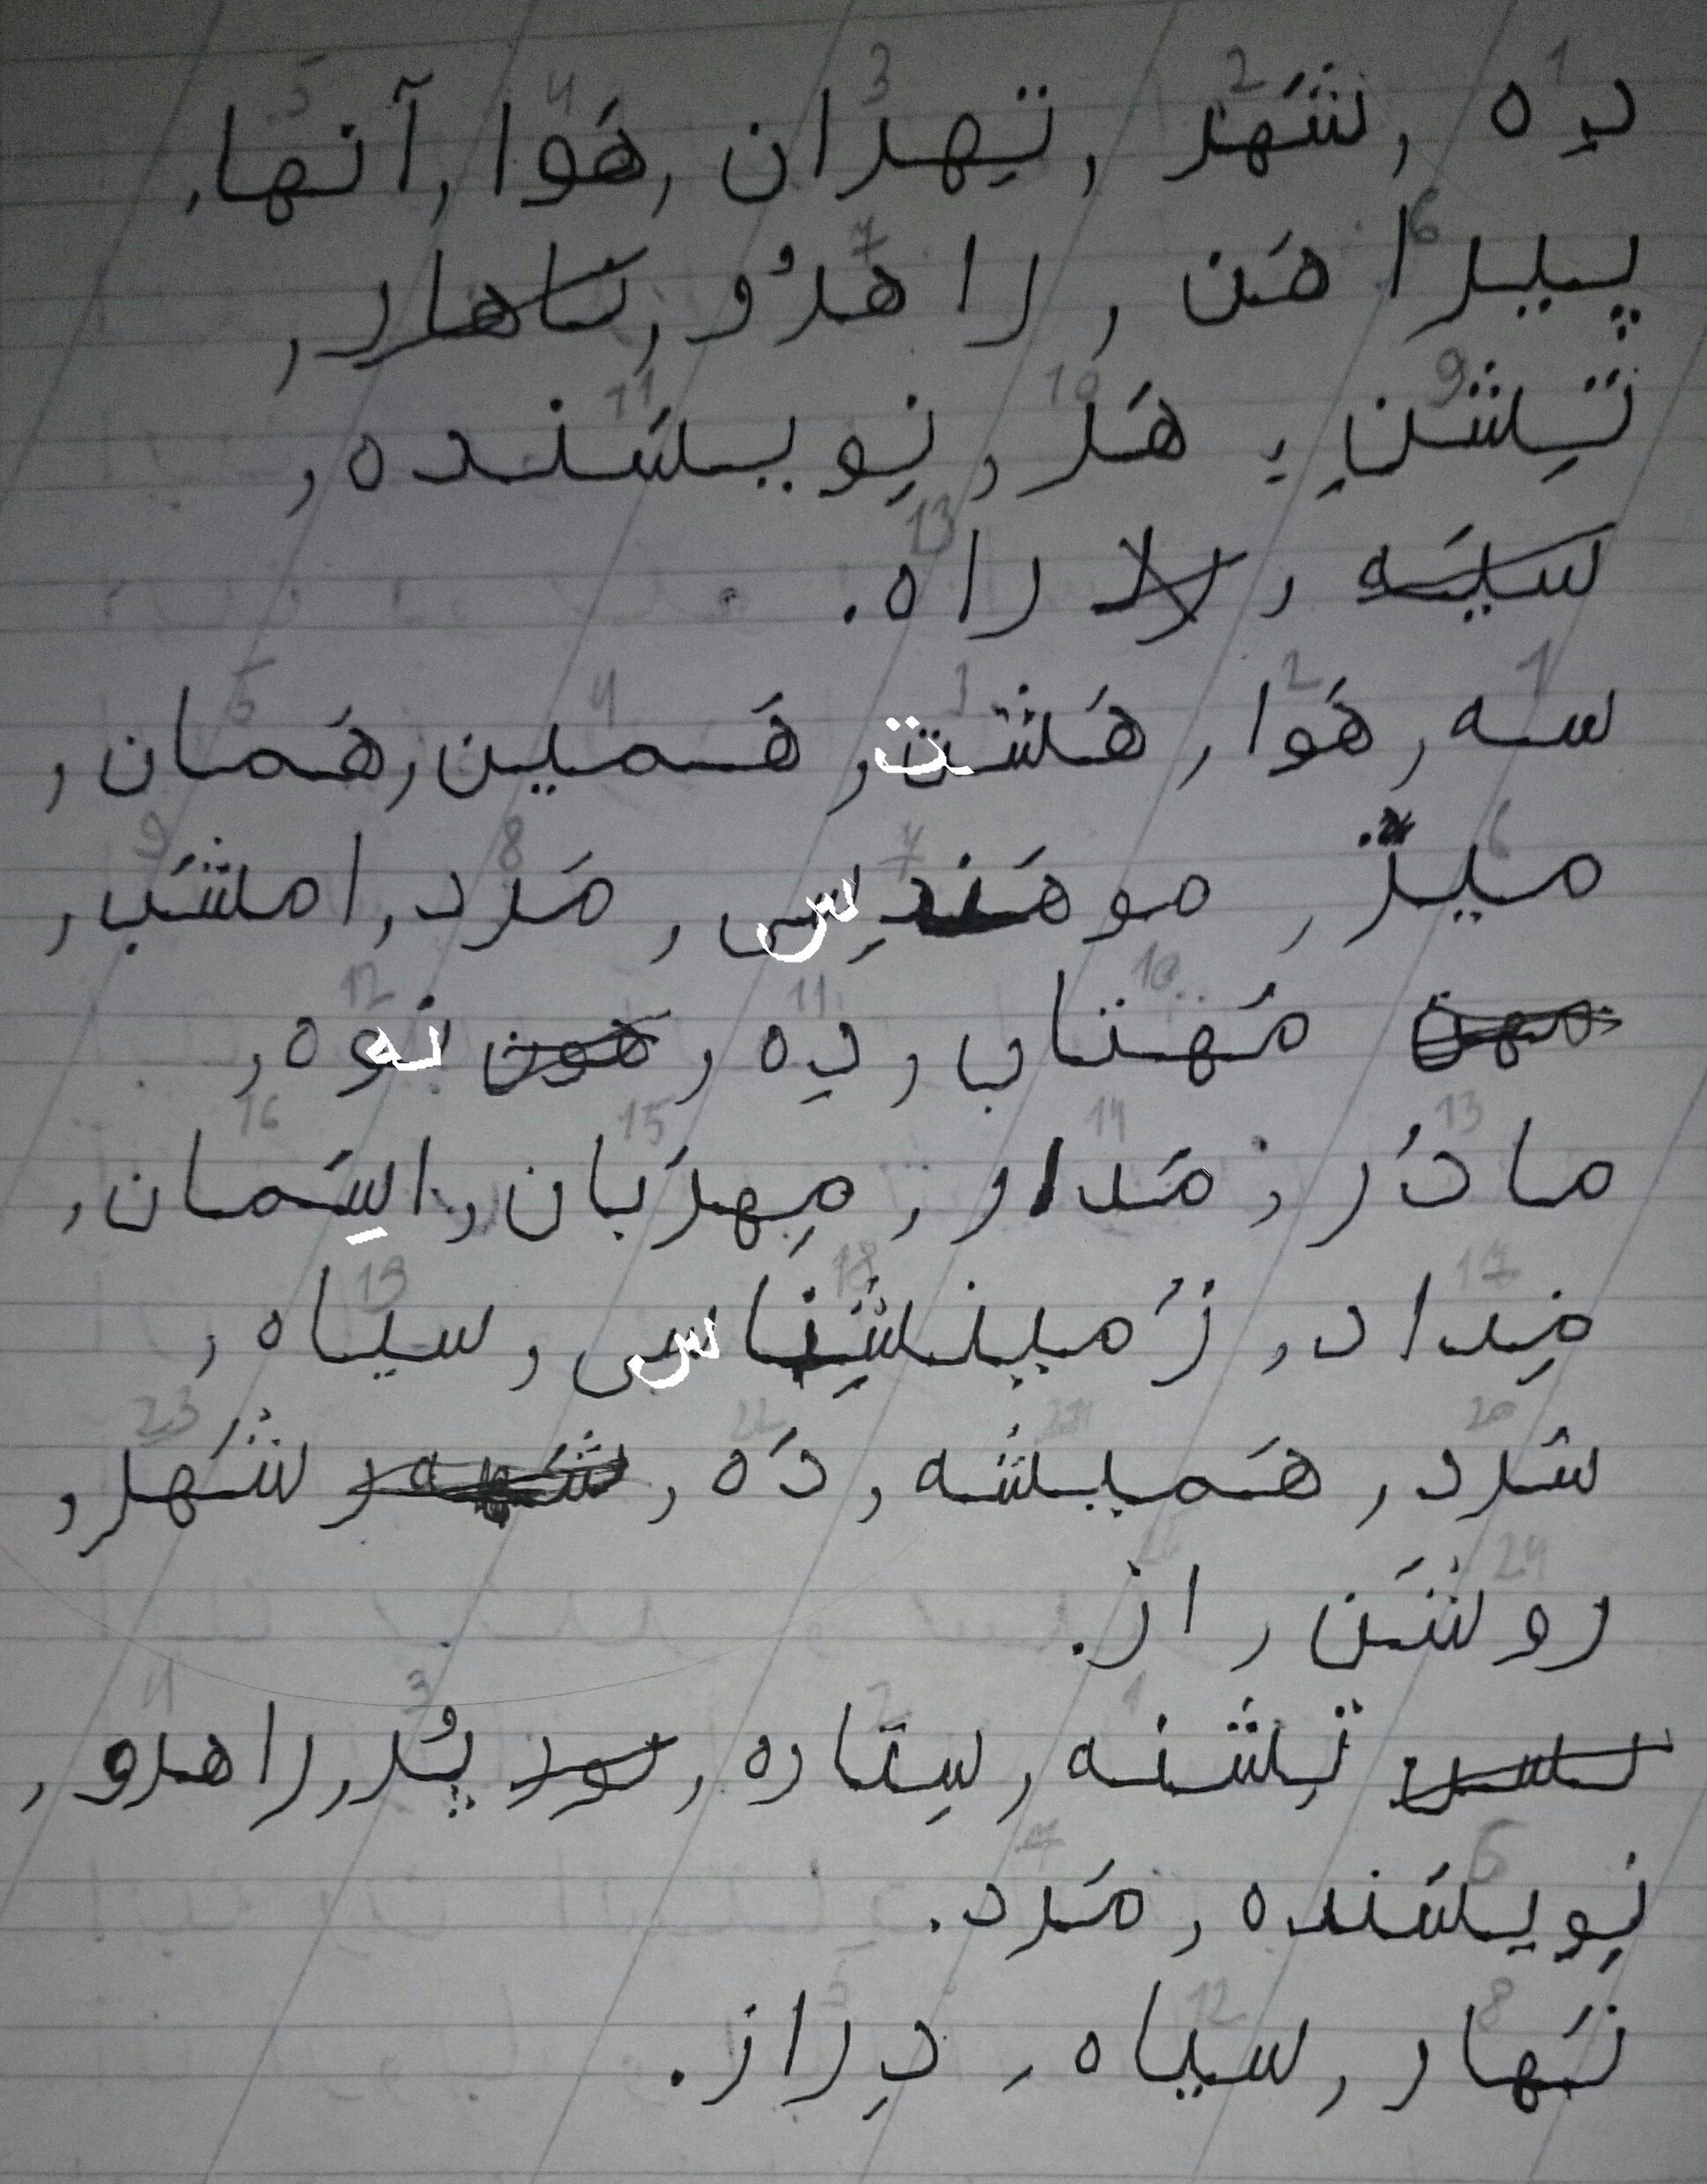 دِه , شَهر , تِهران , هَوا , آنها ,
پیراهَن , راهرُو , ناهار ,
تِشنِ , هَر , نِویسَنده ,
سیَه , راه .
سه , هَوا , هَشت , هَمین , هَمان ,
میز , موهَندِس , مَرد , امشَب ,
مَهتاب , دِه , هون نَوه ,
مادَر , مَدار , مِهرَبان , اسِمان ,
مِداد , زَمینشِناس , سیاه ,
سَرد , هَمیشه , دَه , شَهر ,
روشَن , راز .
تِشنه , سِتاره , نور پُر , راهرو ,
نِویسَنده , مَرد .
نَهار , سیاه , دِراز .